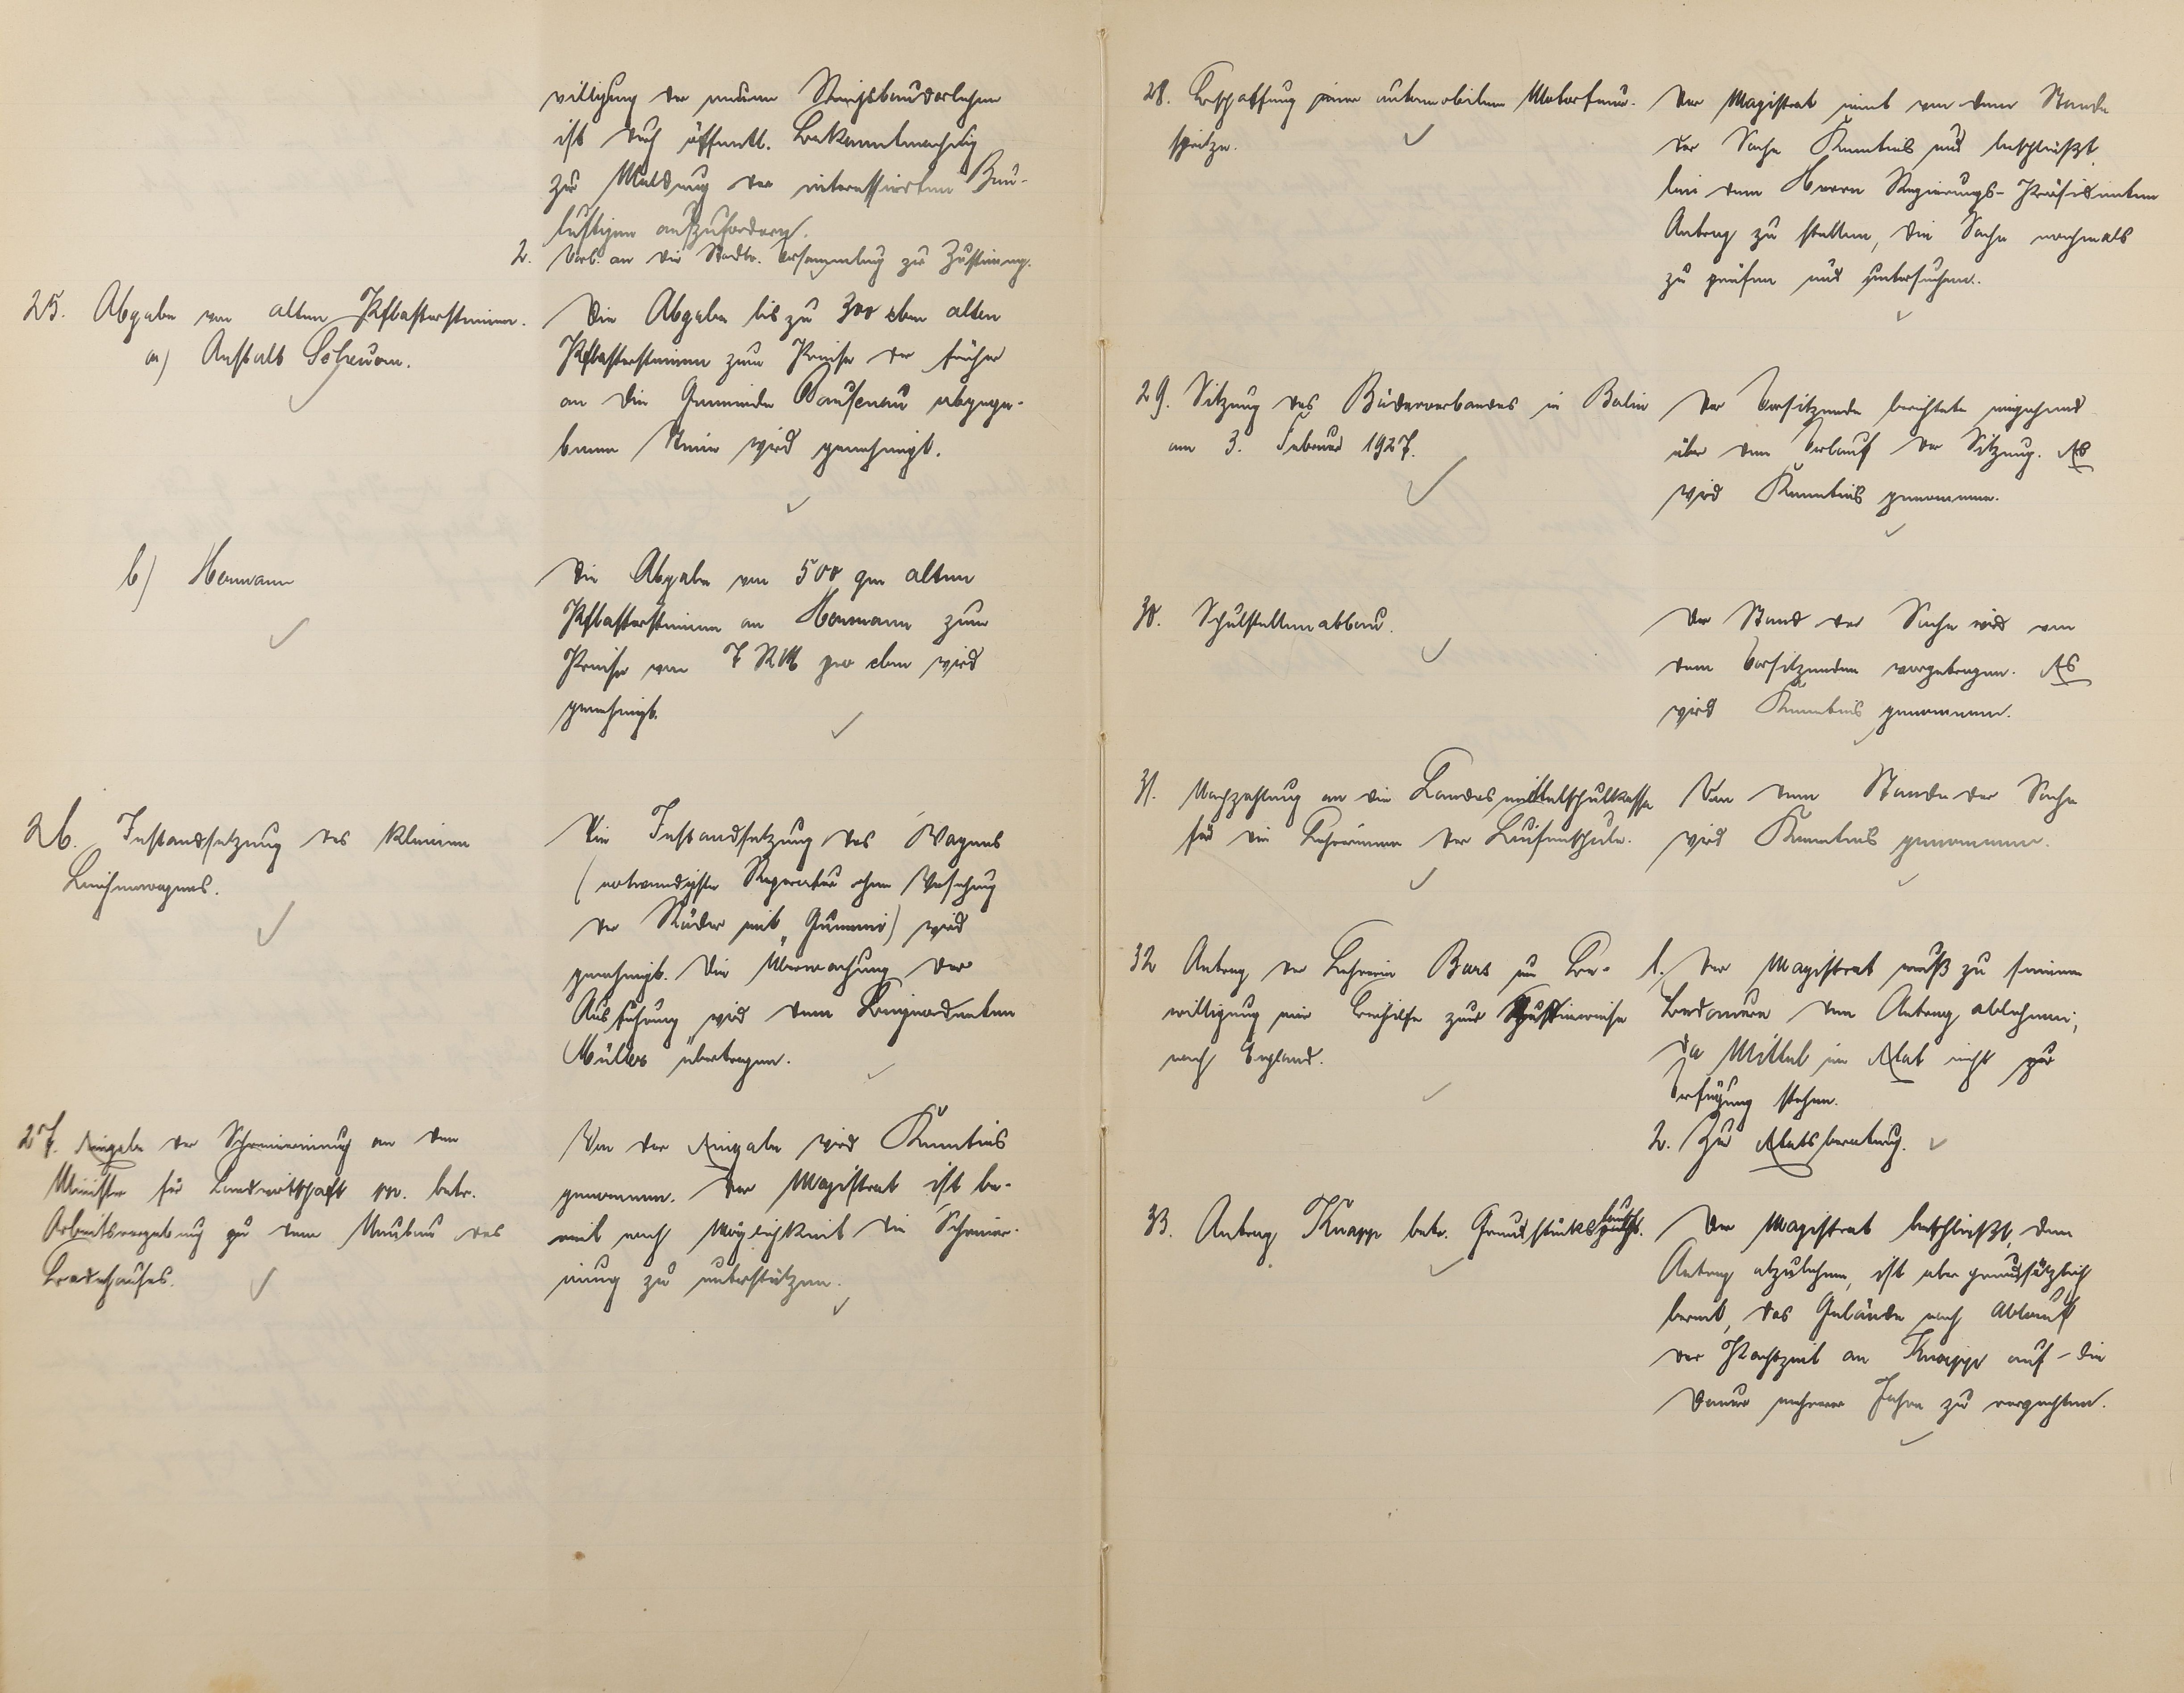 willigung der neuen Reichsbaudarlehen
ist durch öffentl. Bekanntmachung
zur Meldung der interessierten Bau-
lustigen aufzufordern.
2. Vorl. an die Stadtv. Versammlung zur Zustimmg.
25. Abgabe von alten Pflastersteinen.
a) Anstalt Scheuern.
Die Abgabe bis zu 300 cbm alten
Pflastersteinen zum Preise der früher
an die Gemeinde Dausenau abgege-
benen Steine wird genehmigt.
b) Hermann
Die Abgabe von 500 qm alten
Pflastersteinen an Hermann zum
Preise von 7 RM pro cbm wird
genehmigt.
26. Instandsetzung des kleinen
Leichenwagens.
Die Instandsetzung des Wagens
(notwendigste Reparatur ohne Versehung
der Räder mit Gummi) wird
genehmigt. Die Überwachung der
Ausführung wird dem Beigeordneten
Müller übertragen.
27. Eingabe der Schreinerinnung an den
Minister für Landwirtschaft pp. betr.
Arbeitsvergebung zu dem Neubau des
Badehauses.
Von der Eingabe wird Kenntnis
genommen. Der Magistrat ist be-
reit nach Möglichkeit die Schreiner-
innung zu unterstützen.
28. Beschaffung einer automobilen Motorfeuer-
spritze.
Der Magistrat nimmt von dem Stande
der Sache Kenntnis und beschließt
bei dem Herrn Regierungs-Präsidenten
Antrag zu stellen, die Sache nochmals
zu prüfen und untersuchen.
29. Sitzung des Bäderverbandes in Berlin
am 3. Februar 1927.
Der Vorsitzende berichtete eingehend
über den Verlauf der Sitzung. Es
wird Kenntnis genommen.
30. Schulstellenabbau.
Der Stand der Sache wird von
dem Vorsitzenden vorgetragen. Es
wird Kenntnis genommen.
31. Nachzahlung an die Landesmittelschulkasse
für die Lehrerinnen der Luisenschule.
Von dem Stande der Sache
wird Kenntnis genommen.
32 Antrag der Lehrerin um Be-
willigung einer Beihilfe zur
nach England.
1. Der Magistrat muß zu seinem
Bedauern den Antrag ablehnen,
da Mittel im Etat nicht zur
Verfügung stehen.
2. Zur Etatsberatung.
33. Antrag Knapp betr. Grundstückstausch.
Der Magistrat beschließt, den
Antrag abzulehnen, ist aber grundsätzlich
bereit, das Gelände nach Ablauf
der Pachtzeit an Knapp auf die
Dauer mehrerer Jahre zu verpachten.